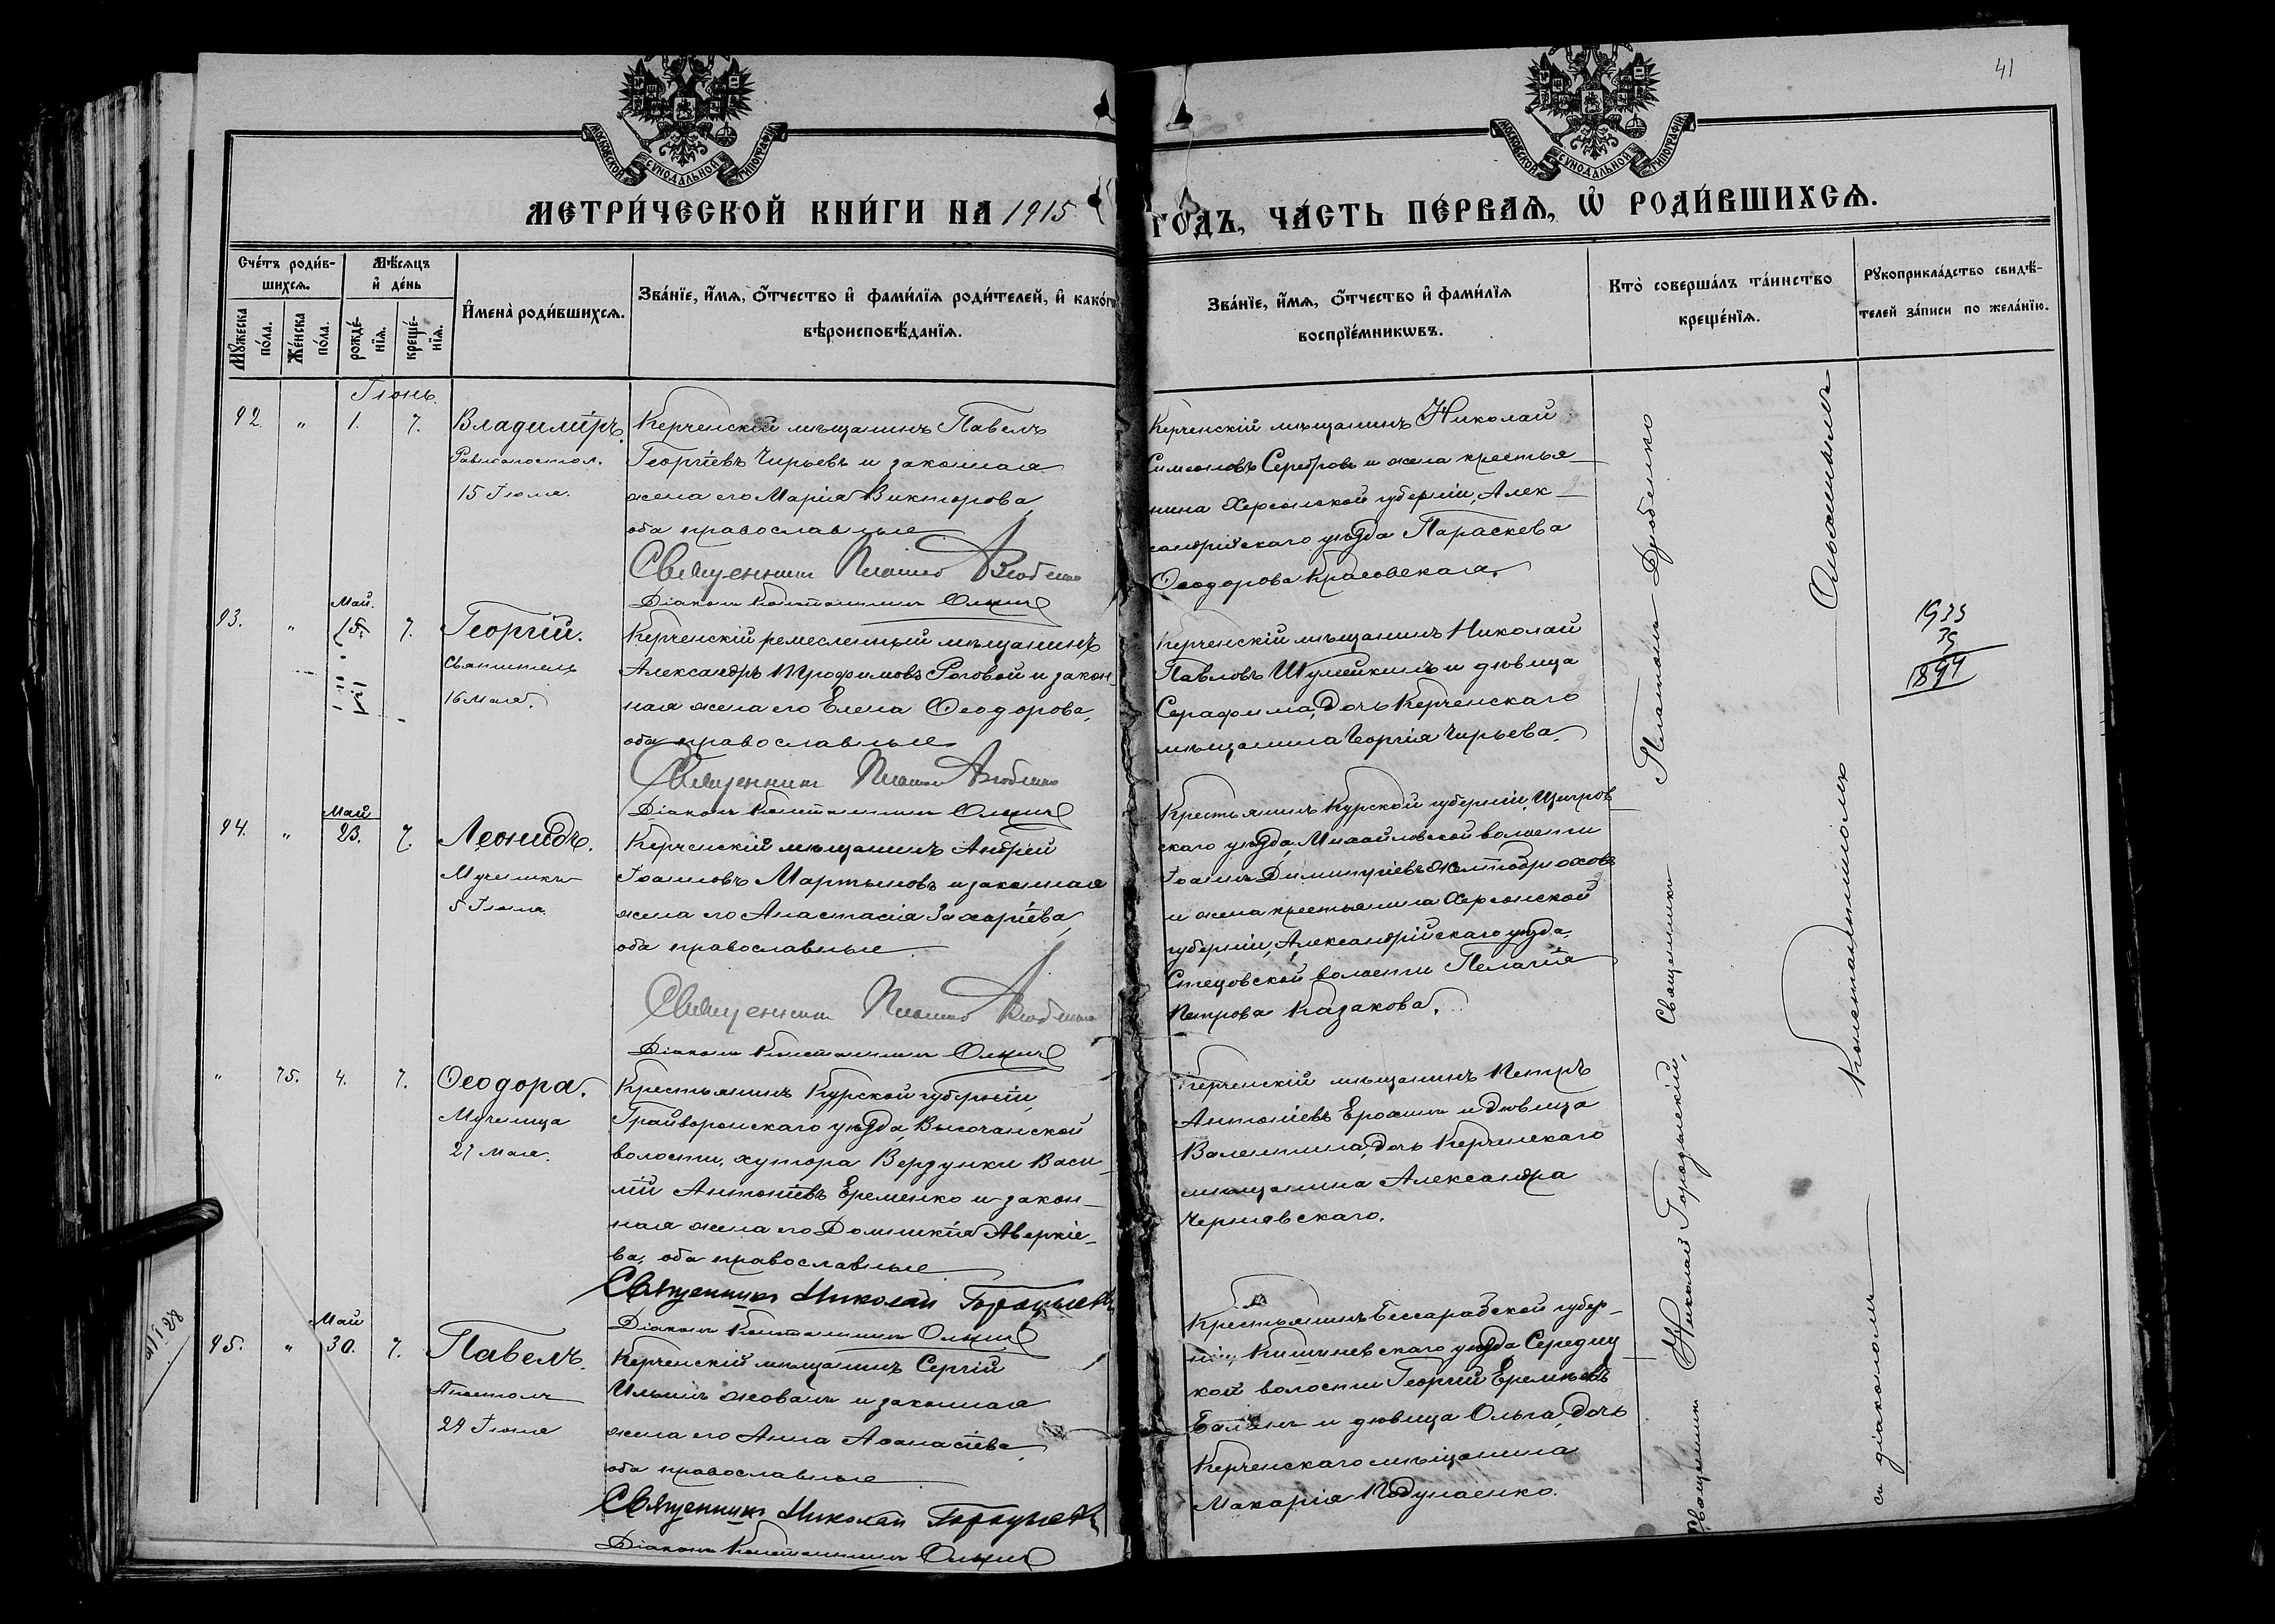 41
МОСКОВСКОЙ СУНОДАЛЬНОЙ ТИПОГРАФІИ
МОСКОВСКОЙ СУНОДАЛЬНОЙ ТИПОГРАФІИ
МЕТРИ́ЧЕСКОЙ КНИ́ГИ НА 1915
ГО́ДЪ, ЧА́СТЬ ПЕ́РВАЯ, Ѡ҆ РОДИ́ВШИХСЯ.
Сче́тъ роди́в-
шихся.
Мѣ́сяцъ
и҆ де́нь
Мꙋ́жеска
по́ла.
Же́нска
по́ла.
рожде́-
нїя.
креще́-
нїя.
И҆мена̀ роди́вшихся.
Зва́нїе, и҆́мя, ѻ҆́тчество и҆ фами́лїя роди́телей, и҆ како́гѡ
вѣроисповѣ́данїя.
Зва́нїе, и҆́мя, ѻ҆́тчество и҆ фами́лїя
воспрїе́мникѡвъ.
Кто̀ соверша́лъ та́инство
креще́нїя.
Рꙋкоприкла́дство свидѣ́-
телей за́писи по жела́нїю.
Іюнь.
92. " 1. 7. Владиміръ.
Равноапостол.
15 Іюля.
Керченскій мѣщанинъ Павелъ
Георгіевъ Чирьевъ и законная
жена его Марія Викторова,
оба православные
Священникъ Платонъ
Діаконъ Константинъ
Керченскій мѣщанинъ Николай
Симеоновъ Серебровъ и жена крестья-
нина Херсонской губерніи, Алек-
сандрійскаго уѣзда Параскева
Ѳеодорова Красовская.
93. " Май. 15. 7. Георгій.
Святитель
16 Мая.
Керченскій ремесленный мѣщанинъ
Александръ Трофимовъ Роговой и закон-
ная жена его Елена Ѳеодорова,
оба православные
Священникъ Платонъ
Діаконъ Константинъ
Керченскій мѣщанинъ Николай
Павловъ Шулейкинъ и дѣвица
Серафима, дочь Керченскаго
мѣщанина Георгія Чирьева.
1933
35
1899
94. " Май 23. 7. Леонидъ.
Мученикъ
5 Іюня.
Керченскій мѣщанинъ Андрей
Іоанновъ Мартыновъ и законная
жена его Анастасія Захаріева,
оба православные.
Священникъ Платонъ
Діаконъ Константинъ
Крестьянинъ Курской губерніи, Щигров-
скаго уѣзда, Михайловской волости
Іоаннъ Димитріевъ Желтобрюховъ
и жена крестьянина Херсонской
губерніи, Александрійскаго уѣзда,
Стецовской волости Пелагія
Петрова Казакова.
" 75. 4. 7. Ѳеодора.
Мученица
27 Мая.
Крестьянинъ Курской губерніи,
Грайворонскаго уѣзда, Высочанской
волости, хутора Вердунки Васи-
лій Антоніевъ Еременко и закон-
ная жена его Домникія Аверкіе-
ва, оба православные
Священникъ Николай
Діаконъ Константинъ
Керченскій мѣщанинъ Петръ
Антоніевъ Ерохинъ и дѣвица
Валентина, дочь Керченскаго
мѣщанина Александра
Чернявскаго.
95. " Май 30. 7. Павелъ.
Апостолъ
29 Іюня
Керченскій мѣщанинъ Сергій
Ильинъ Ховалъ и законная
жена его Анна Аѳанасіева,
оба православные
Священникъ Николай
Діаконъ Константинъ
Крестьянинъ Бессарабской губер-
ніи, Кишиневскаго уѣзда,
кой волости Георгій Еремѣевъ
и дѣвица Ольга, дочь
Керченскаго мѣщанина
Макарія Подулаенко.
Священники Платонъ
Священникъ Николай
съ діакономъ Константиномъ